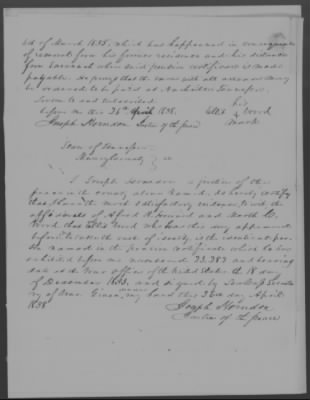 of March 1855, which has happened in consequence
of removal from his former residence and his distance
from Savannah where said pension certificate is made
payable. He prays that the same with all arrears may
be ordered to be paid at Nashville Tennessee.
Sworn to and subscribed his
before me this 26th April 1858. Ellis X Wood
Joseph Herndon Justice of the peace mark
State of Tennessee
Maury County
I Joseph Herndon a Justice of the
peace in the county above named do hereby certify
that I have the most satisfactory evidence, to wit the
affidavits of Alfred R. Howard and North C.
Wood that Ellis Wood who has this day appeared
before to take the oath of identity, is the identical per-
son named in the pension certificate which he has
exhibited before me numbered 23.383 and bearing
date at the War office of the United States the 18 day
of December 1833, and signed by Lew Cass Secreta-
ry of War. Given under my hand this 26th day April
1858
Joseph Herndon
Justice of the peace